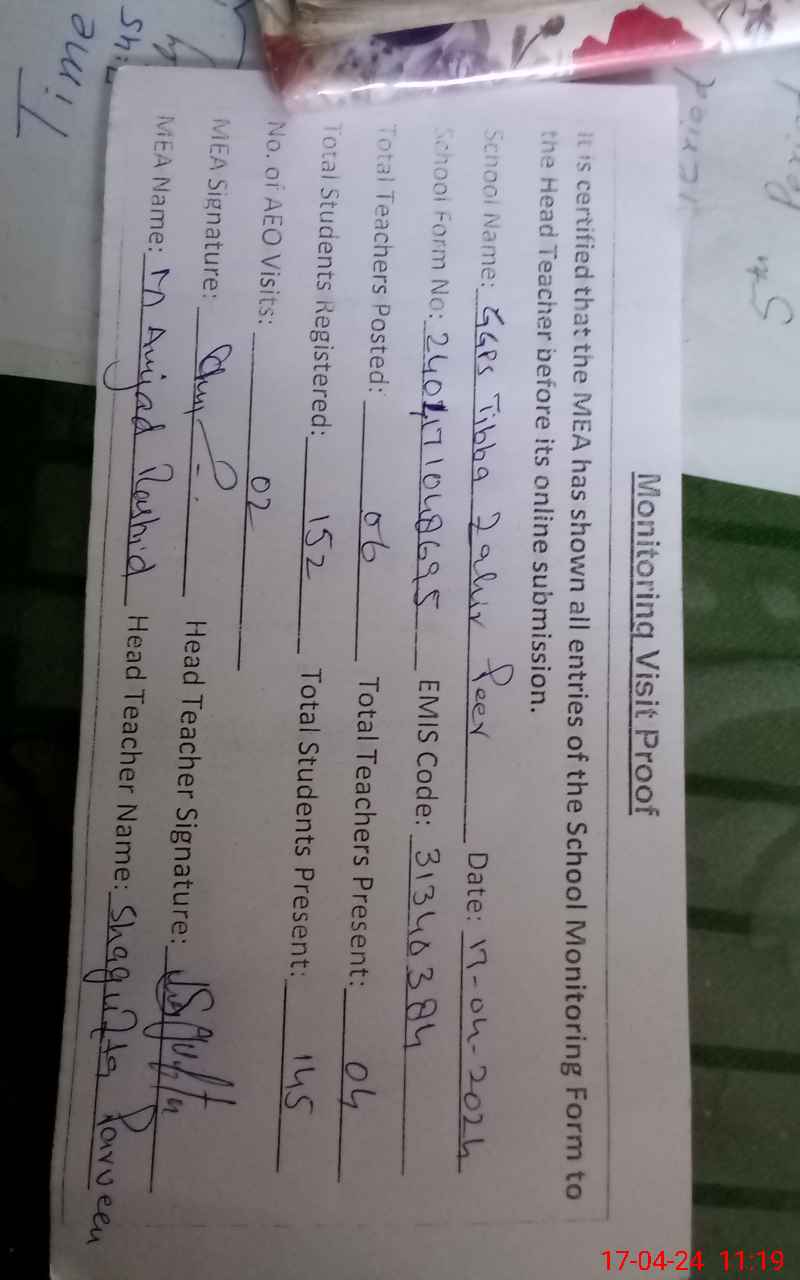 Monitoring Visit Proof
It is certified that the MEA has shown all entries of the School Monitoring Form to
the Head Teacher before its online submission.
School Name: GGPS Tibba Zahir Peer Date: 17-04-2024
School Form No: EMIS Code: 31340384
Total Teachers Posted: 06 Total Teachers Present: 04
Total Students Registered: 152 Total Students Present: 145
No. of AEO Visits: 02
MEA Signature: Head Teacher Signature:
MEA Name: M Amjad Rashid Head Teacher Name: Shagufta Parveen
Time
17-04-24 11:19